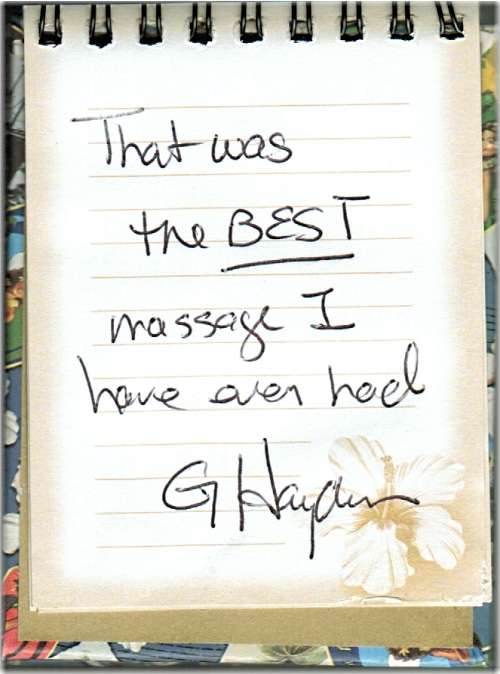 That was
the BEST
massage I
have ever had
G Hayden